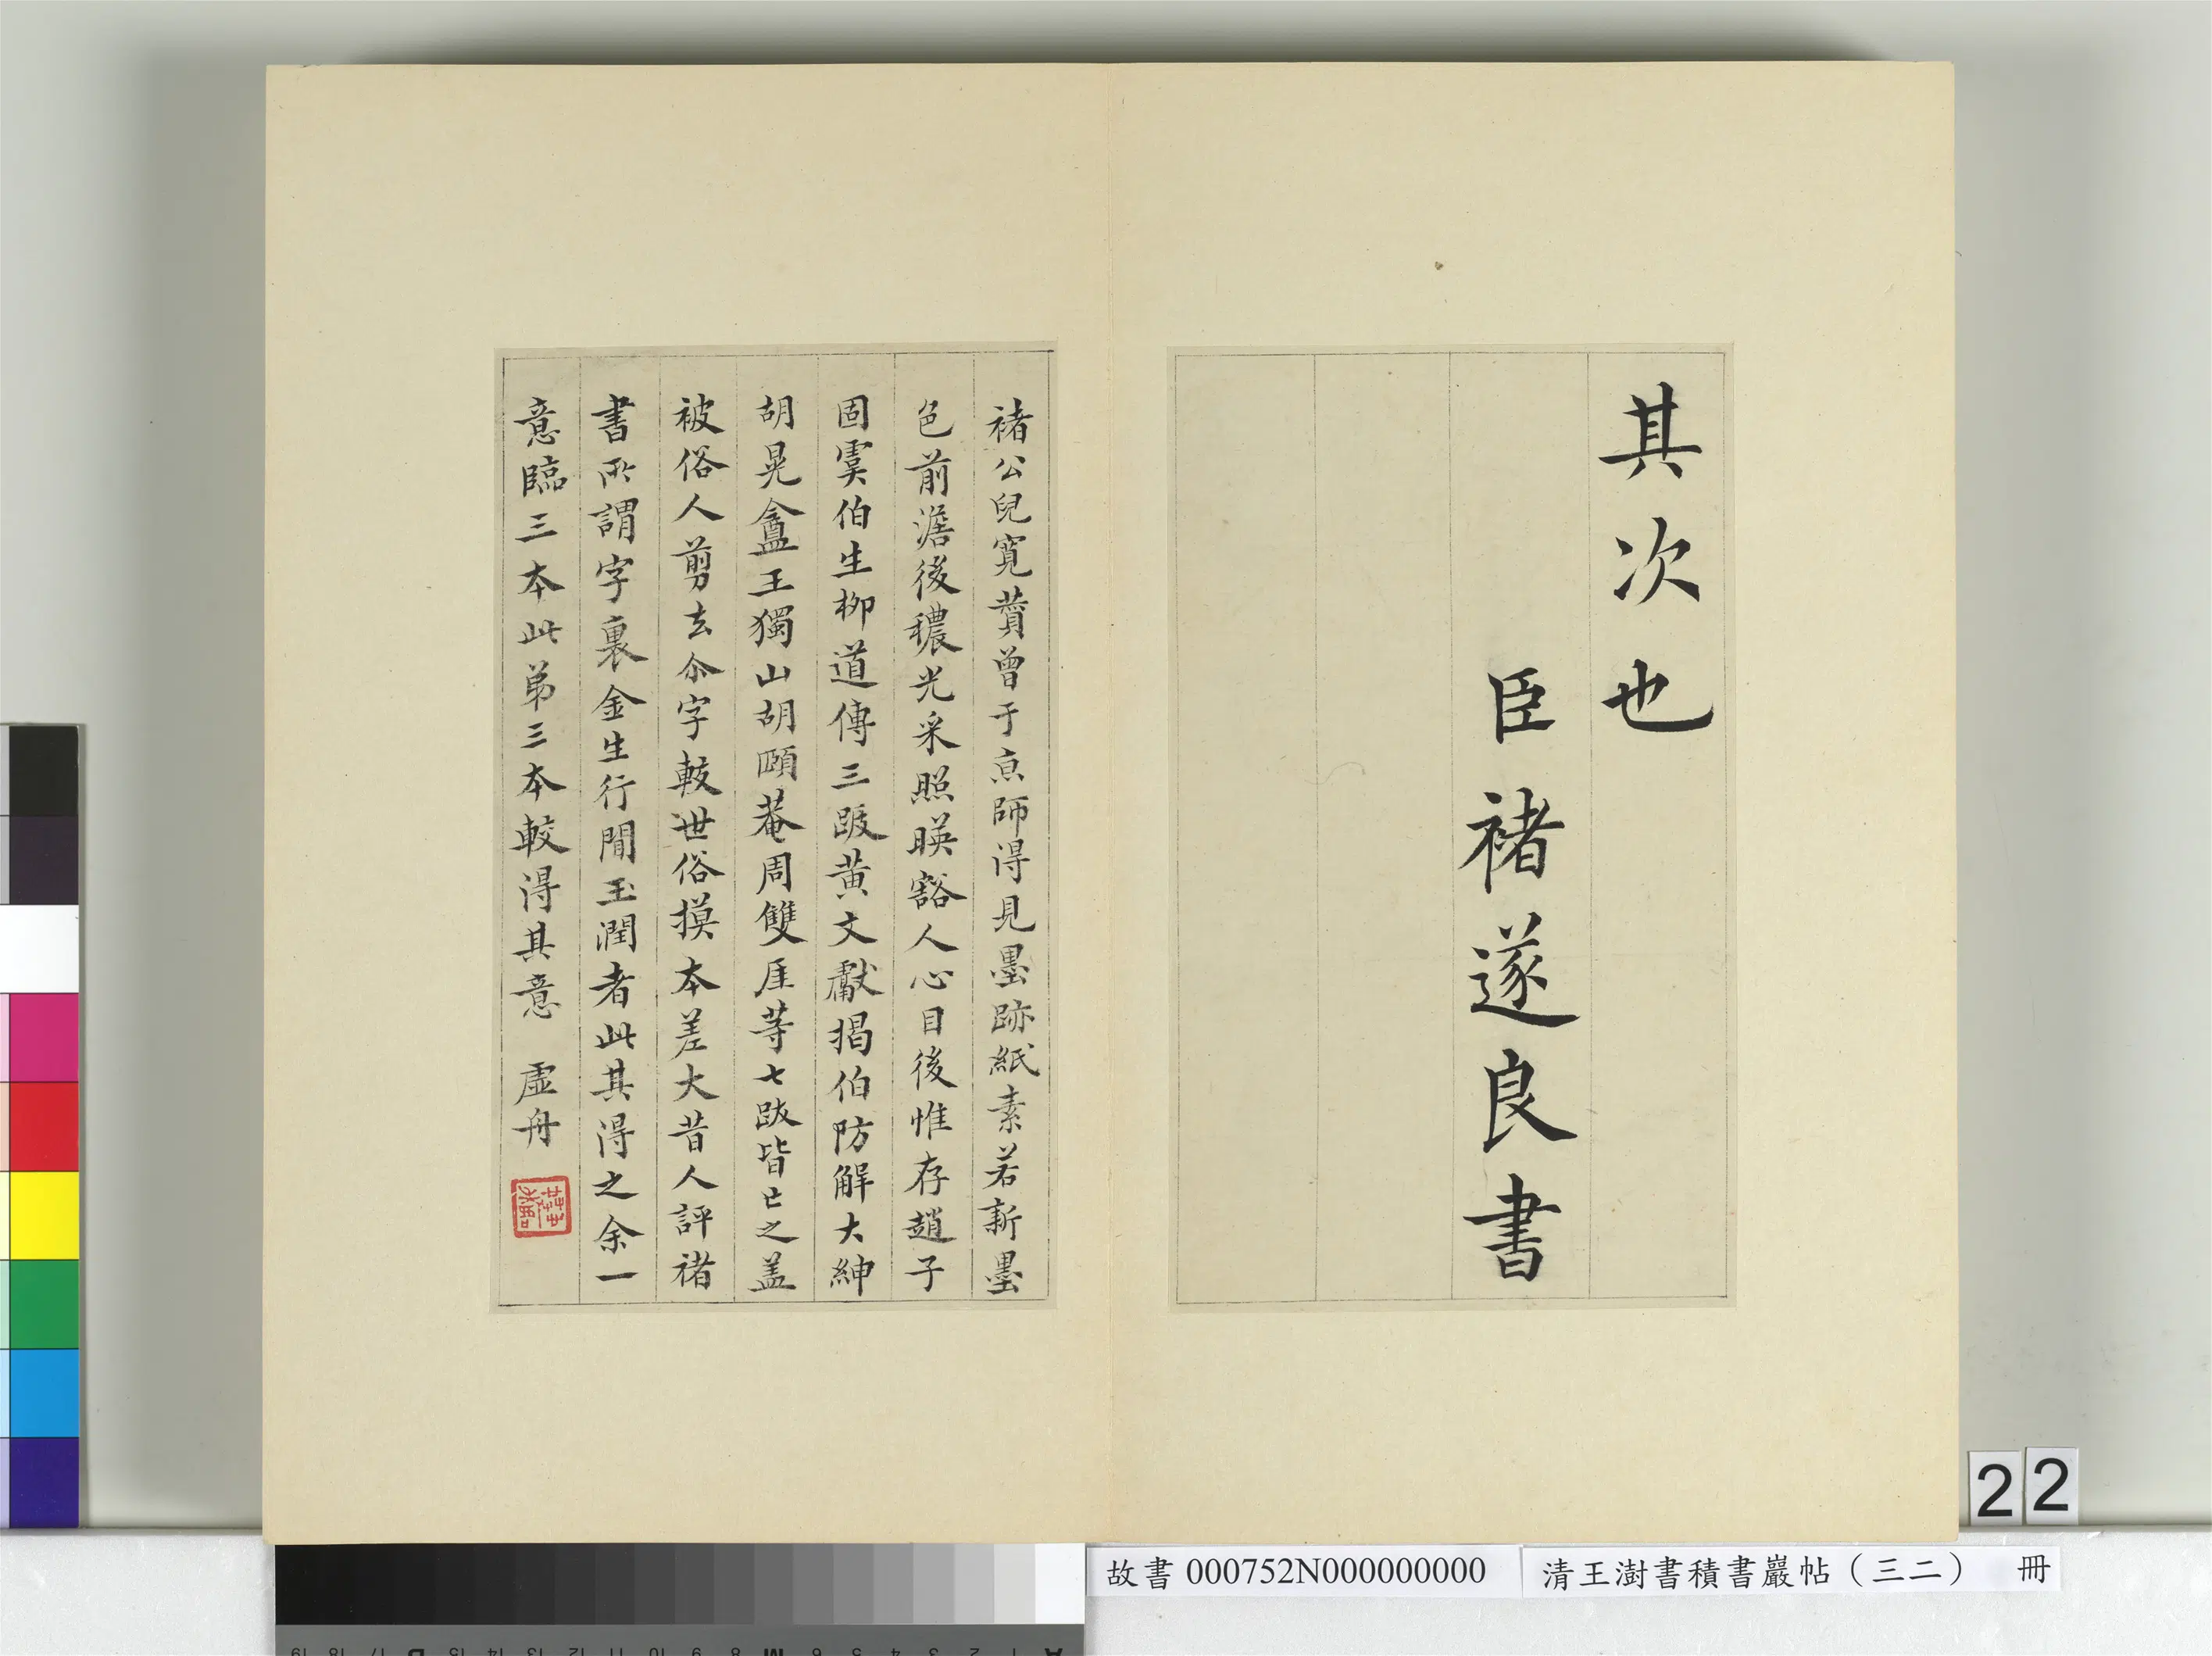 其次也
臣褚遂良書
褚公兒寬贊曾于京師得見墨跡紙素若新墨
色前澹後穠光采照暎豁人心目後惟存趙子
固虞伯生柳道傳三跋黃文獻揭伯防解大紳
胡晃盦王獨山胡頤菴周雙厓等七跋皆亡之盖
被俗人剪去尒字較世俗摸本差大昔人評褚
書所謂字裏金生行間玉潤者此其得之余一
意臨三本此弟三本較得其意 虛舟
22
故書 000752N000000000
清王澍書積書巖帖（三二） 冊